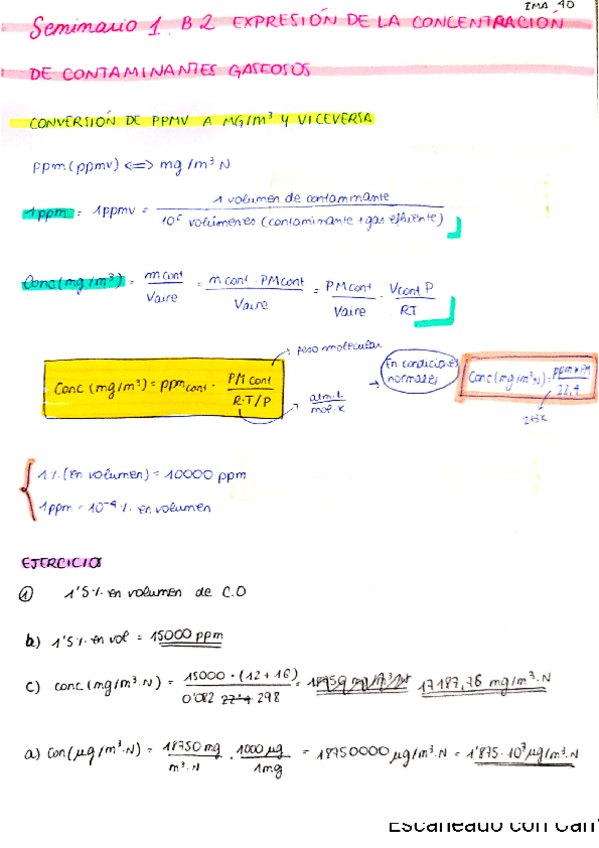 IMA 40
Seminario 1. B2 EXPRESIÓN DE LA CONCENTRACIÓN
DE CONTAMINANTES GASEOSOS
CONVERSIÓN DE PPMV A MG/m³ Y VICEVERSA
ppm (ppmv) <=> mg/m³N
1ppm = 1ppmv = 1 volumen de contaminante / 10⁶ volúmenes (contaminante + gas efluente)
Conc(mg/m³) = m cont / Vaire = m cont · PMcont / Vaire = PMcont / Vaire · Vcont P / RT
peso molecular
Conc (mg/m³) = ppm cont · PM cont / R·T/P
atm·L / mol·K
En condiciones normales
Conc(mg/m³N) = ppm * PM / 22,4
273K
1% (en volumen) = 10000 ppm
1ppm = 10⁻⁴ % en volumen
EJERCICIOS
① 1'5% en volumen de C.O
b) 1'5% en vol = 15000 ppm
c) conc (mg/m³·N) = 15000 · (12 + 16) / 0'082 22'4 298 = 18750 mg/m³N 17187,76 mg/m³·N
a) Con(μg/m³·N) = 18750 mg / m³·N · 1000 μg / 1mg = 18750000 μg/m³·N = 1'875·10⁷ μg/m³·N
Escaneado con Can